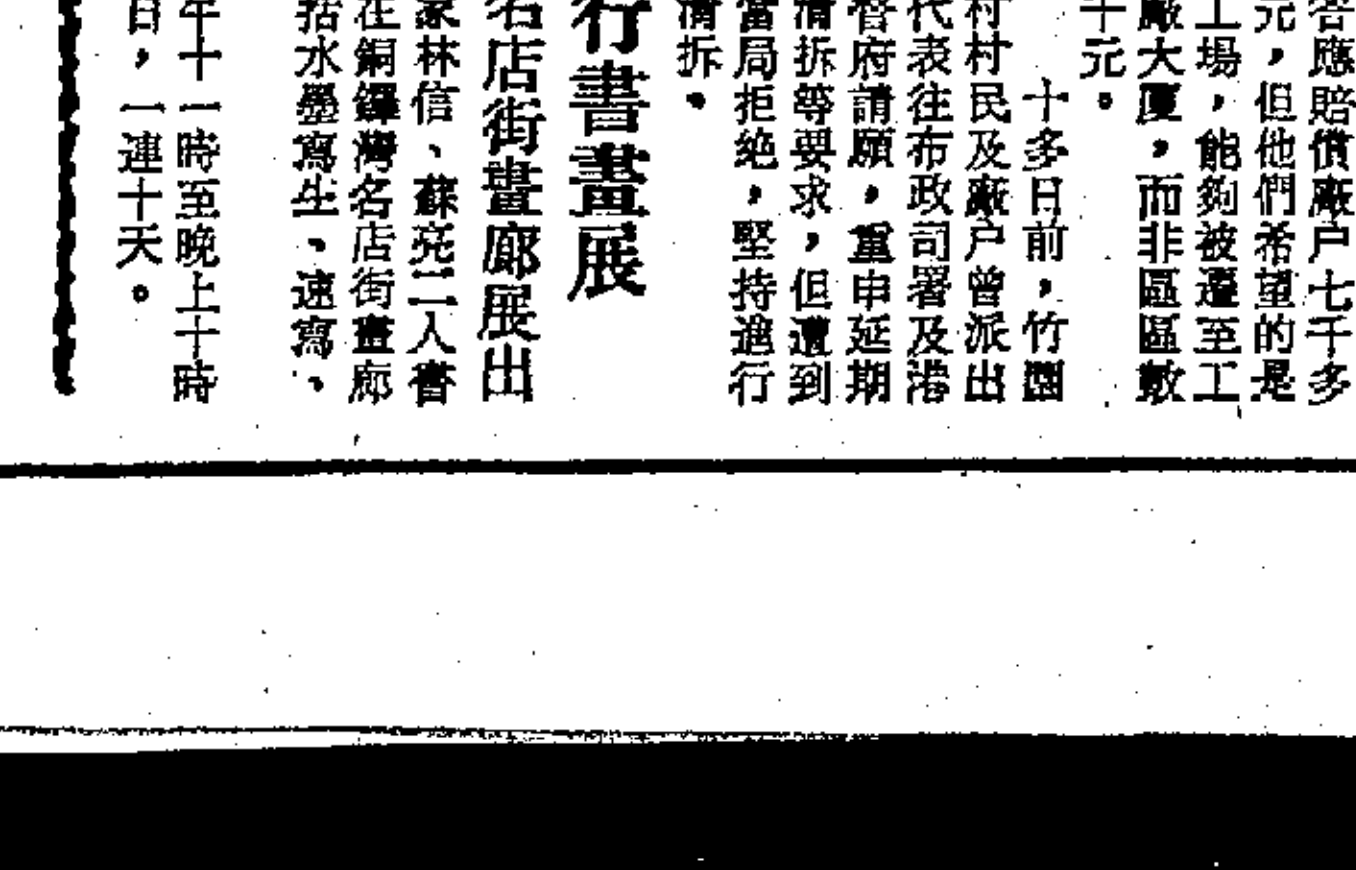 答應賠償廠戶七千多
元，但他們希望的是
工場，能夠被遷至工
廠大厦，而非區區數
千元。
十多日前，竹園
村村民及廠戶曾派出
代表往布政司署及港
督府請願，重申延期
清拆等要求，但遭到
當局拒絶，堅持進行
清拆。
行書畫展
名店街畫廊展出
家林信、蘇亮二人書
在銅鑼灣名店街畫廊
括水墨寫生、速寫、
午十一時至晚上十時
日，一連十天。